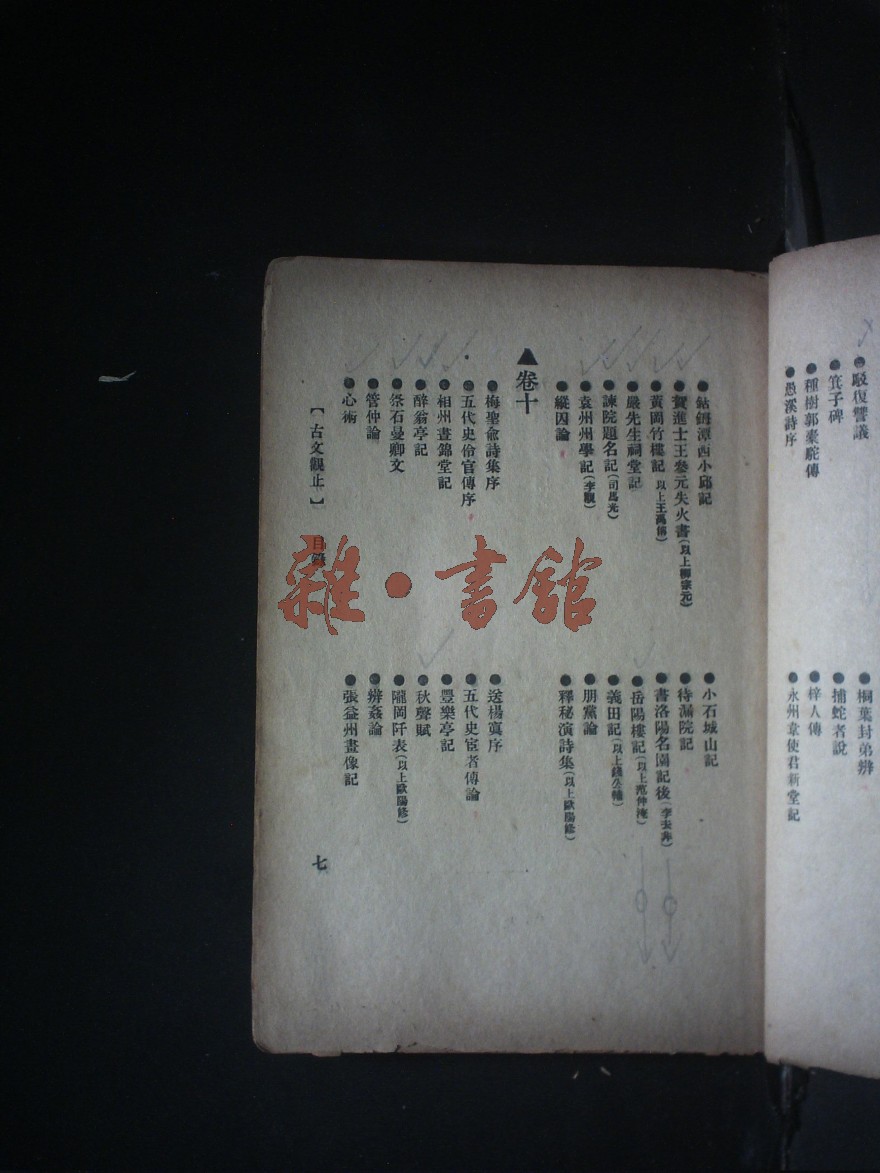 ●駁復讐議
●桐葉封弟辨
●箕子碑
●捕蛇者說
●種樹郭橐駝傳
●梓人傳
●愚溪詩序
●永州韋使君新堂記
●鈷鉧潭西小邱記
●小石城山記
●賀進士王參元失火書(以上柳宗元)
●待漏院記
●黃岡竹樓記 以上王禹偁)
●書洛陽名園記後(李去非)
●嚴先生祠堂記
●岳陽樓記(以上范仲淹)
●諫院題名記(司馬光)
●義田記(以上錢公輔)
●袁州州學記(李覯)
●朋黨論
●縱囚論
●釋秘演詩集(以上歐陽修)
▲卷十
●梅聖俞詩集序
●送楊寘序
●五代史伶官傳序
●五代史宦者傳論
●相州晝錦堂記
●豐樂亭記
●醉翁亭記
●秋聲賦
●祭石曼卿文
●隴岡阡表(以上歐陽修)
●管仲論
●辨姦論
●心術
●張益州畫像記
【古文觀止】 目錄
七
雜·書館